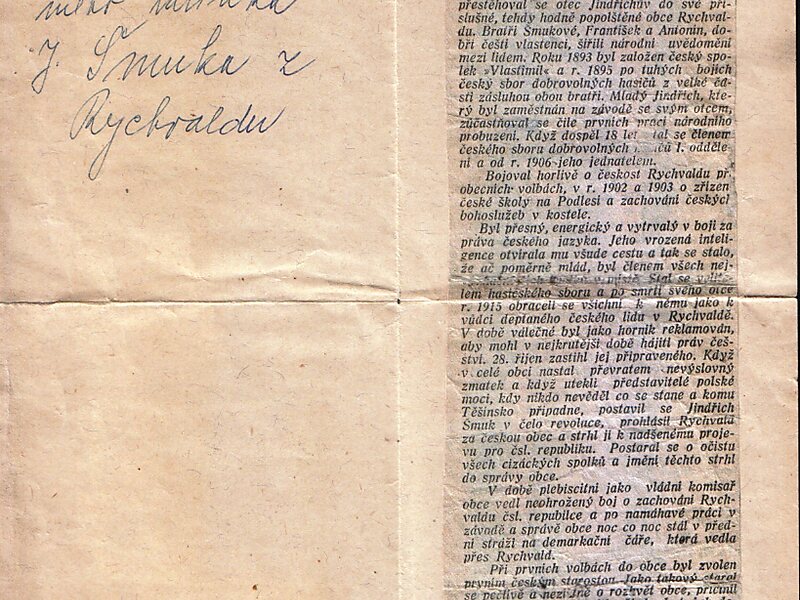 J. Šmuka z
Rychvaldu
přestěhoval se otec Jindřichův do své pří-
slušné, tehdy hodně popolštěné obce Rychval-
du. Bratři Šmukové, František a Antonín, do-
bří čeští vlastenci, šířili národní uvědomění
mezi lidem. Roku 1893 byl založen český spo-
lek »Vlastimil« a r. 1895 po tuhých bojích
český sbor dobrovolných hasičů z velké čá-
sti zásluhou obou bratří. Mladý Jindřich, kte-
rý byl zaměstnán na závodě se svým otcem,
zúčastňoval se čile prvních prací národního
probuzení. Když dospěl 18 let stal se členem
českého sboru dobrovolných hasičů I. odděle-
ní a od r. 1906 jeho jednatelem.
Bojoval horlivě o českost Rychvaldu při
obecních volbách, v r. 1902 a 1903 o zřízení
české školy na Podlesí a zachování českých
bohoslužeb v kostele.
Byl přesný, energický a vytrvalý v boji za
práva českého jazyka. Jeho vrozená inteli-
gence otvírala mu všude cestu a tak se stalo,
že ač poměrně mlád, byl členem všech nej-
Stal se
lem hasičského sboru a po smrti svého otce
r. 1915 obraceli se všichni k němu jako k
vůdci deptaného českého lidu v Rychvaldě.
V době válečné byl jako horník reklamován,
aby mohl v nejkrutější době hájiti práv češ-
ství. 28. říjen zastihl jej připraveného. Když
v celé obci nastal převratem nevýslovný
zmatek a když utekli představitelé polské
moci, kdy nikdo nevěděl co se stane a komu
Těšínsko připadne, postavil se Jindřich
Šmuk v čelo revoluce, prohlásil Rychvald
za českou obec a strhl ji k nadšenému proje-
vu pro čsl. republiku. Postaral se o očistu
všech cizáckých spolků a jmění těchto strhl
do správy obce.
V době plebiscitní jako vládní komisař
obce vedl neohrožený boj o zachování Rych-
valdu čsl. republice a po namáhavé práci v
závodě a správě obce noc co noc stál v před-
ní stráži na demarkační čáře, která vedla
přes Rychvald.
Při prvních volbách do obce byl zvolen
prvním českým starostou. Jako takový staral
se pečlivě a nezištně o rozkvět obce, přičinil